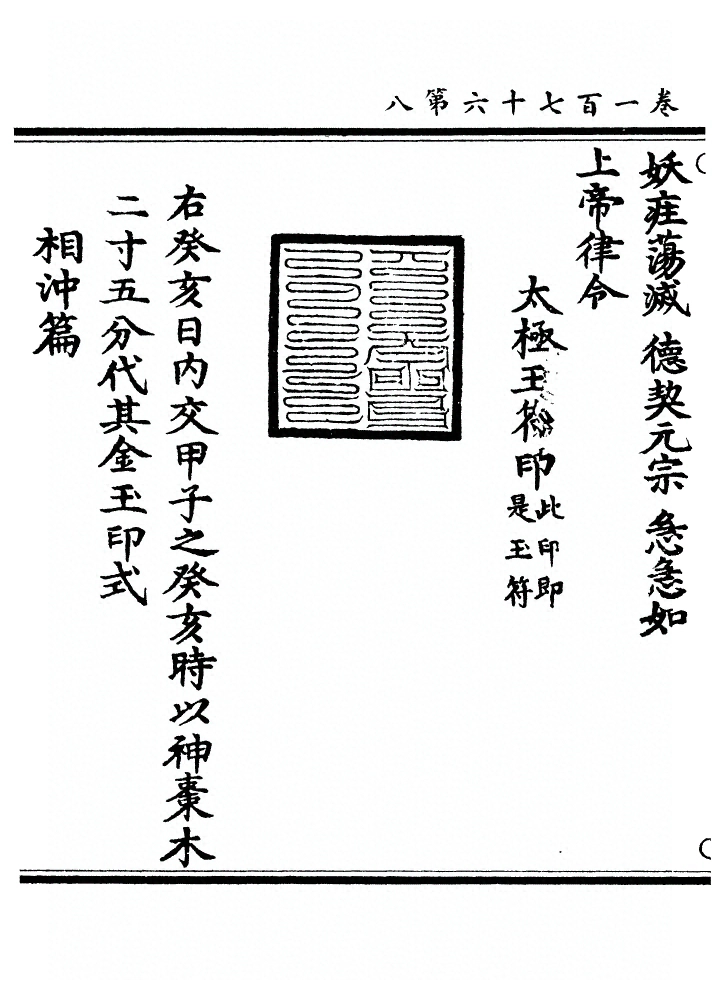 卷一百七十六第八
妖疰蕩滅 德契元宗 急急如
上帝律令
太極玉符印
此印即
是玉符
右癸亥日內交甲子之癸亥時以神棗木
二寸五分代其金玉印式
相沖篇